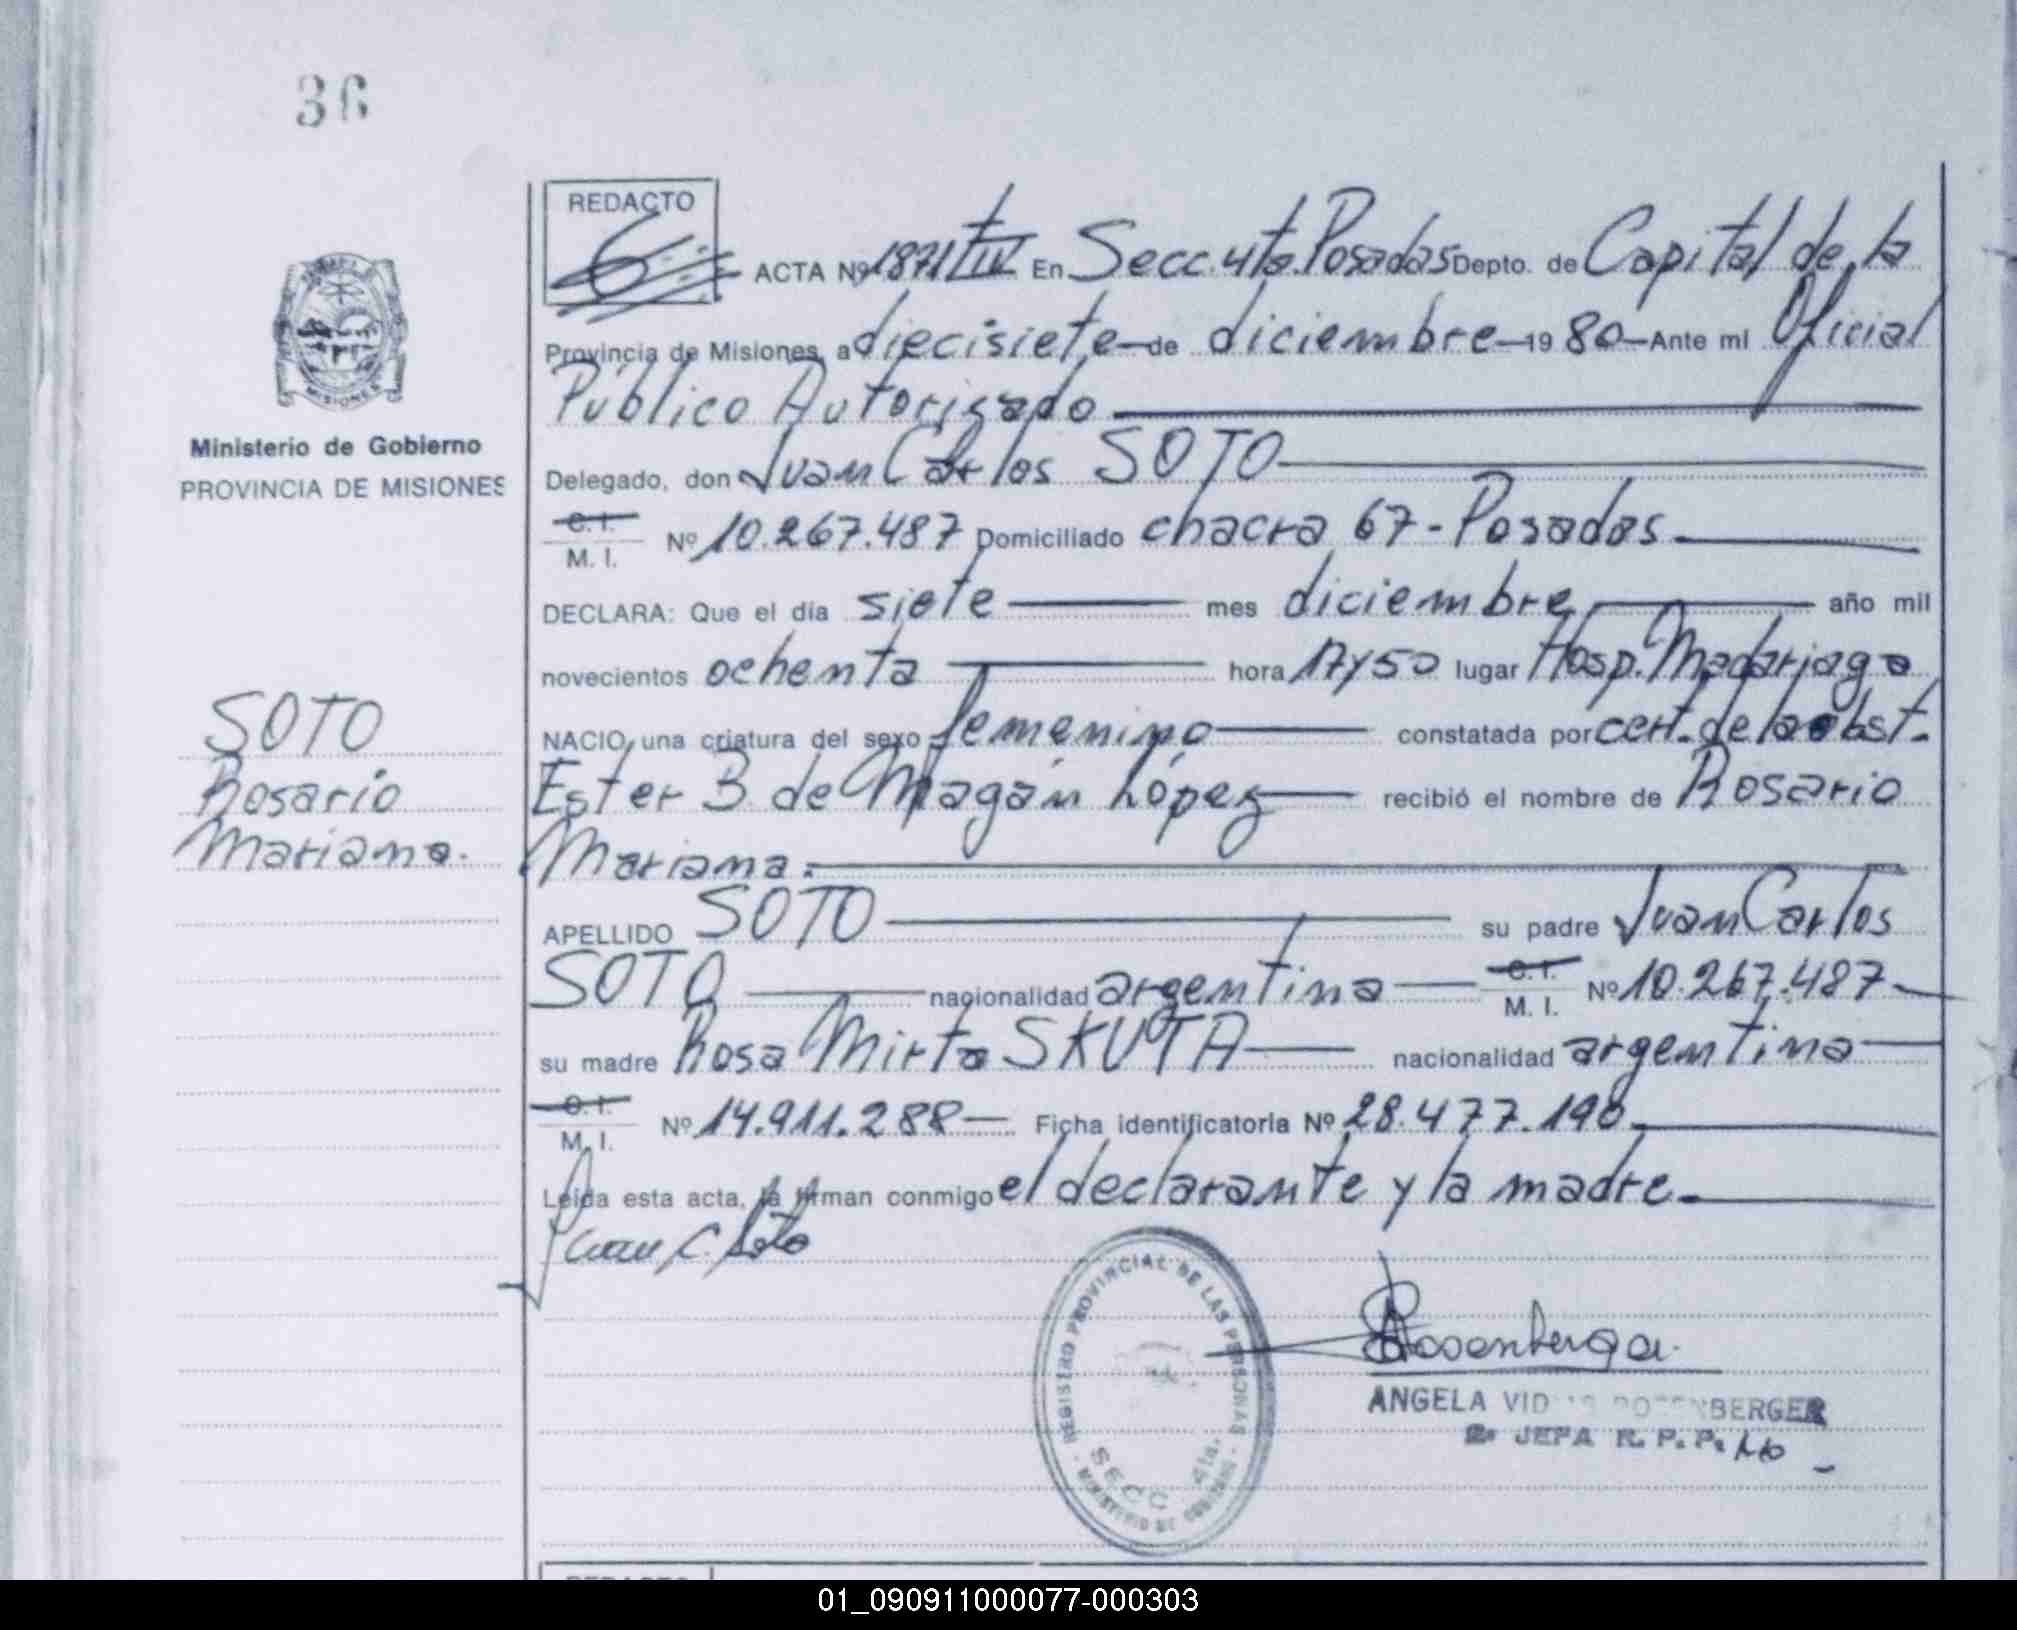 36
REDACTO
ACTA Nº 1871 T IV En Secc. 4ta. Posadas Depto. de Capital de la
Provincia de Misiones, a diecisiete de diciembre 19 80 Ante mí Oficial
Público Autorizado
Ministerio de Gobierno
PROVINCIA DE MISIONES
Delegado, don Juan Carlos SOTO
C. I.
M. I. Nº 10.267.487 Domiciliado chacra 67 - Posadas
DECLARA: Que el día siete mes diciembre año mil
novecientos ochenta hora 17 y 50 lugar Hosp. Madariaga
SOTO
Rosario
Mariana.
NACIO, una criatura del sexo femenino constatada por cert. de la obst.
Ester B. de Magán López recibió el nombre de Rosario
Mariana.
APELLIDO SOTO su padre Juan Carlos
SOTO nacionalidad argentina C. I. M. I. Nº 10.267.487
su madre Rosa Mirta SKUTA nacionalidad argentina
C. I.
M. I. Nº 14.911.288 Ficha identificatoria Nº 28.477.190
Leída esta acta, la firman conmigo el declarante y la madre.
Juan C. Soto
REGISTRO PROVINCIAL DE LAS PERSONAS
SECC. 4ta.
MINISTERIO DE GOBIERNO
ANGELA VID ROSENBERGER
2º JEFA R. P. P.
REDACTO
01_090911000077-000303